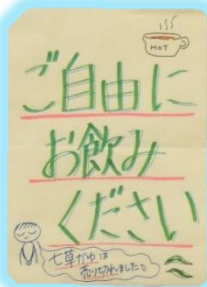 HOT
ご自由に
お飲み
ください
七草がゆは
売り切れました。